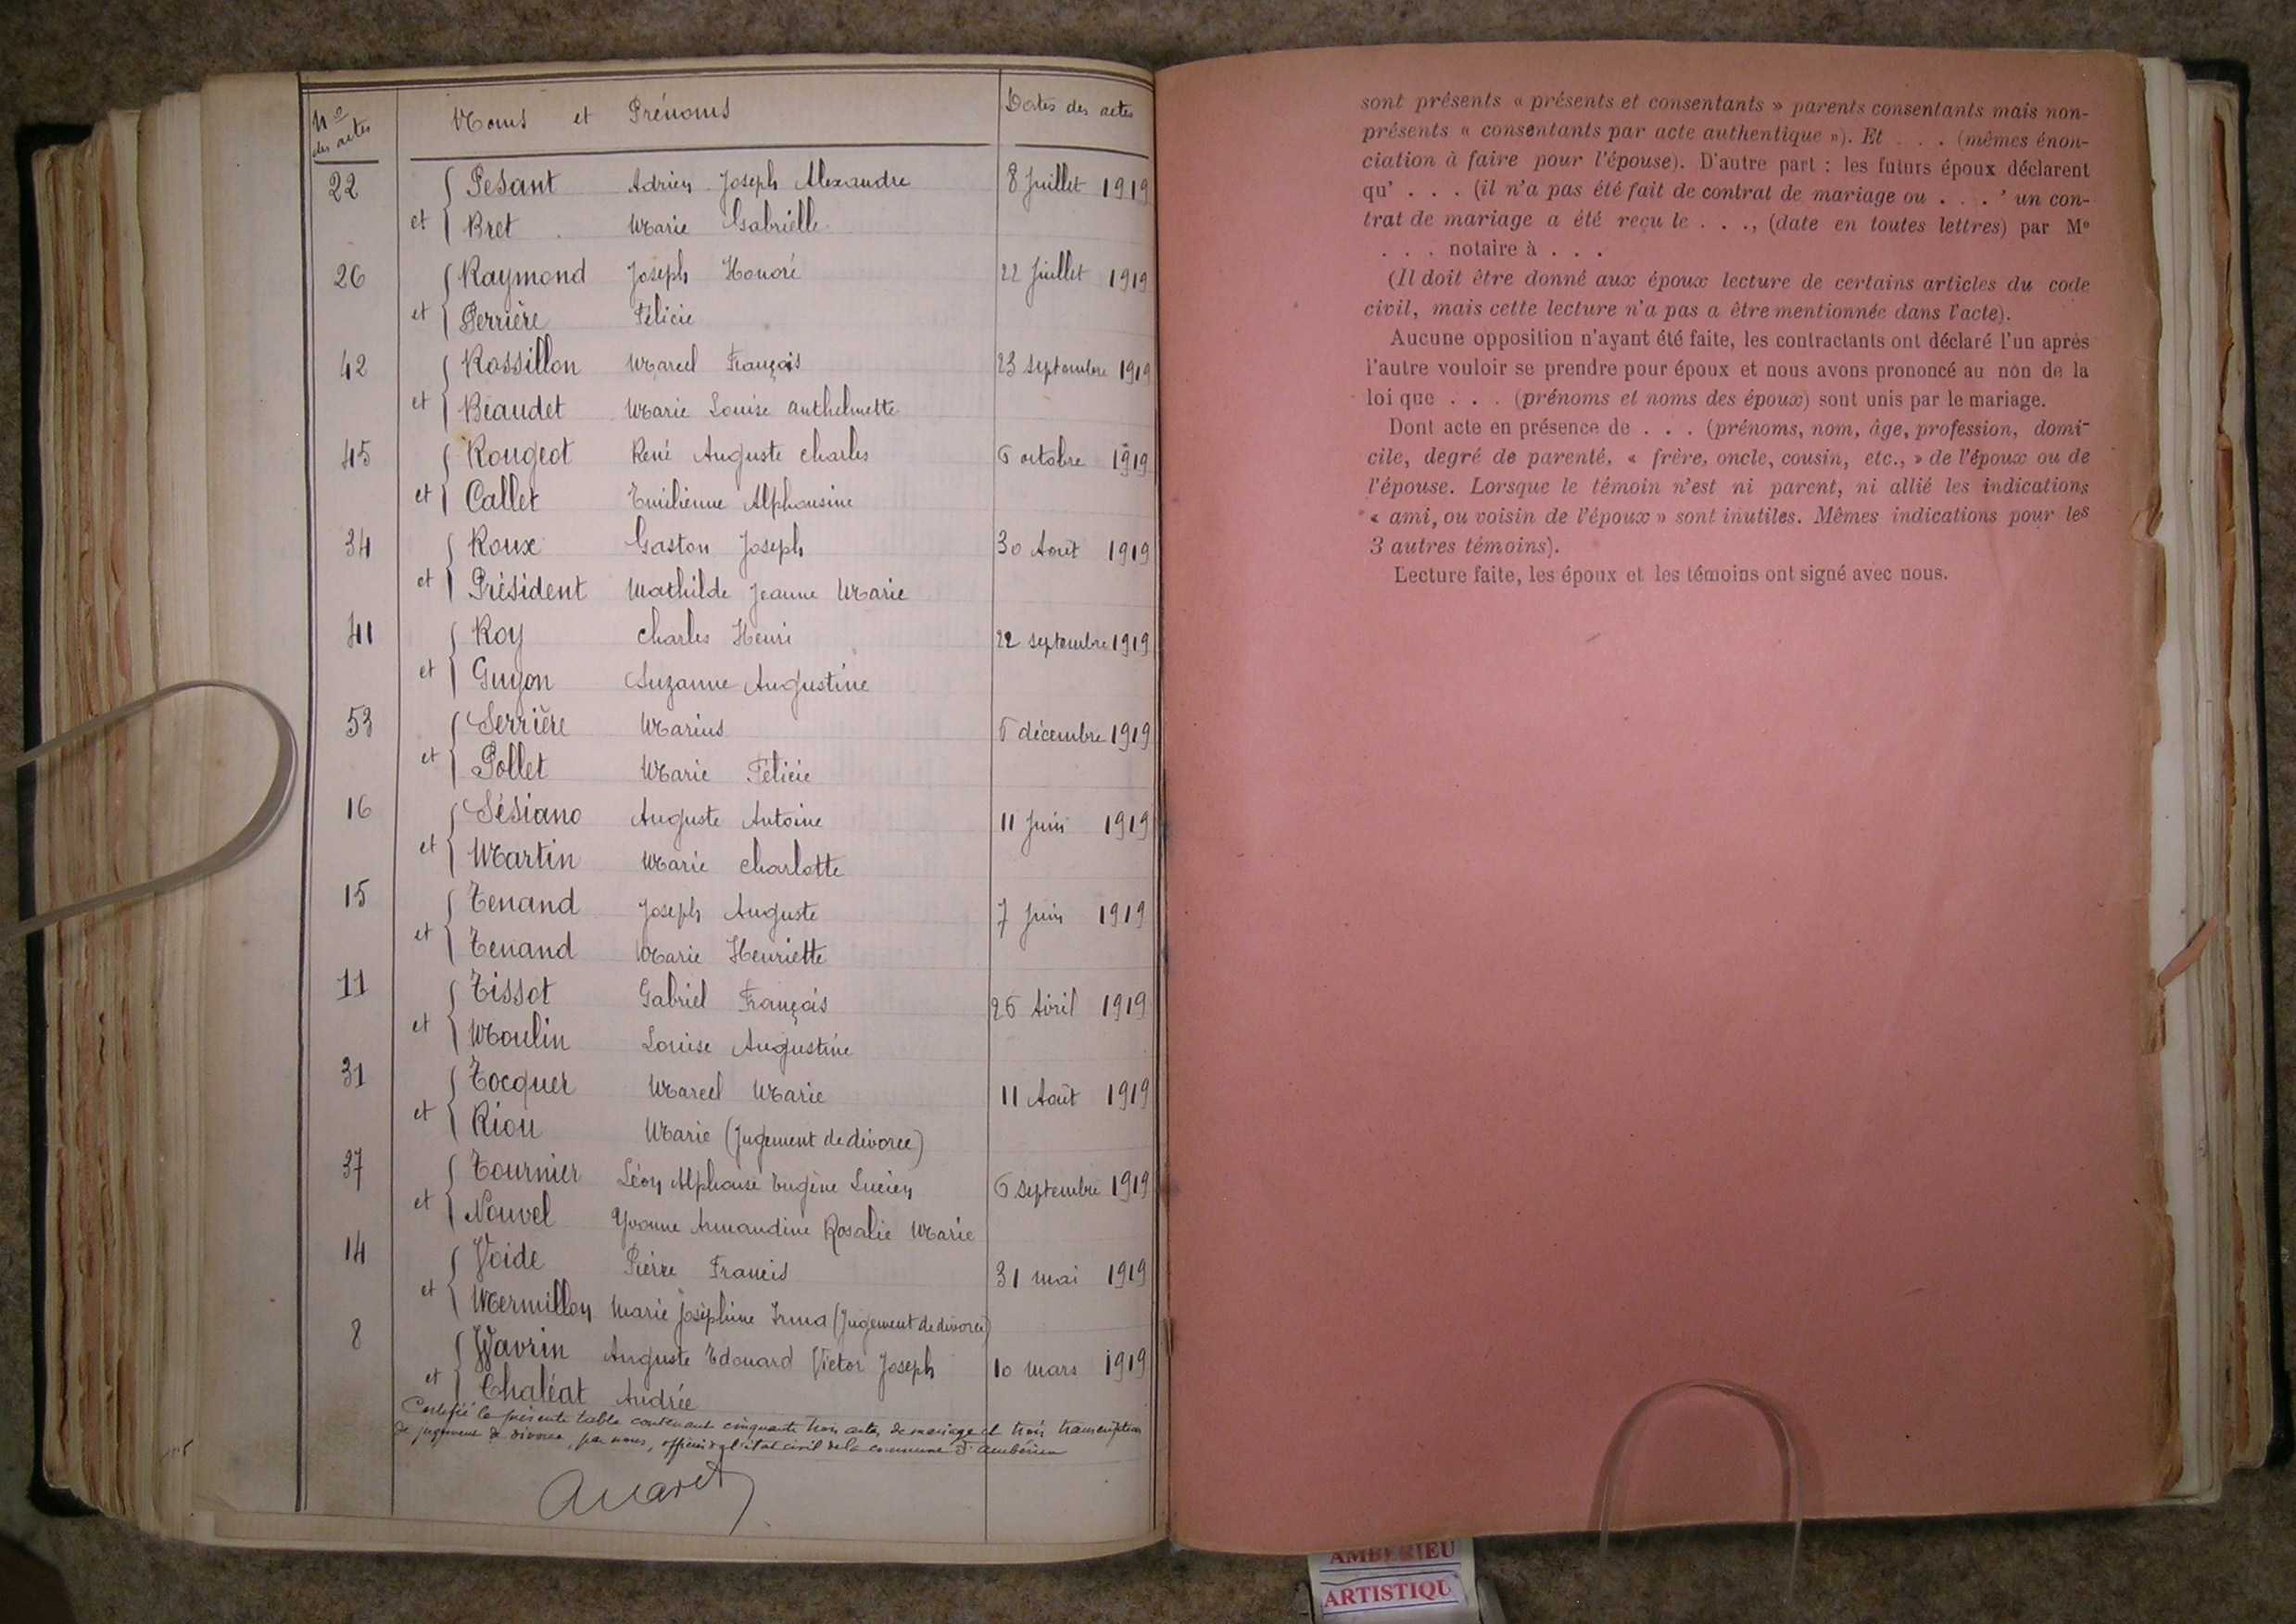 Nos des actes Noms et Prénoms Dates des actes
22 Pesant Adrien Joseph Alexandre 8 Juillet 1919
et Bret Marie Gabrielle
26 Raymond Joseph Honoré 22 Juillet 1919
et Perrière Félicie
42 Rossillon Marcel François 23 septembre 1919
et Beaudet Marie Louise Anthelmette
45 Rougeot René Auguste Charles 6 octobre 1919
et Callet Emilienne Alphonsine
34 Roux Gaston Joseph 30 Août 1919
et Président Mathilde Jeanne Marie
41 Roy Charles Henri 22 septembre 1919
et Guyon Suzanne Augustine
53 Serrière Marius 6 décembre 1919
et Pollet Marie Félicie
16 Sésiano Auguste Antoine 11 Juin 1919
et Martin Marie Charlotte
15 Tenand Joseph Auguste 7 Juin 1919
et Tenand Marie Henriette
11 Tissot Gabriel François 26 Avril 1919
et Moulin Louise Augustine
31 Tocquer Marcel Marie 11 Août 1919
et Riou Marie (Jugement de divorce)
37 Tournier Léon Alphonse Eugène Lucien 6 septembre 1919
et Nouvel Yvonne Armandine Rosalie Marie
14 Voide Pierre Francis 31 mai 1919
et Mermillon Marie Joséphine Irma (Jugement de divorce)
8 Wavrin Auguste Edouard Victor Joseph 10 mars 1919
et Chaléat Andrée
Certifié la présente table contenant cinquante trois actes de mariage et trois transcription
de jugement de divorce, par nous, officier de l'état civil de la commune d'Ambérieu
sont présents « présents et consentants » parents consentants mais non-
présents « consentants par acte authentique »). Et . . . (mêmes énon-
ciation à faire pour l'épouse). D'autre part : les futurs époux déclarent
qu' . . . (il n'a pas été fait de contrat de mariage ou . . . ' un con-
trat de mariage a été reçu le . . ., (date en toutes lettres) par Me
. . . notaire à . . .
(Il doit être donné aux époux lecture de certains articles du code
civil, mais cette lecture n'a pas a être mentionnée dans l'acte).
Aucune opposition n'ayant été faite, les contractants ont déclaré l'un après
l'autre vouloir se prendre pour époux et nous avons prononcé au non de la
loi que . . . (prénoms et noms des époux) sont unis par le mariage.
Dont acte en présence de . . . (prénoms, nom, âge, profession, domi-
cile, degré de parenté, « frère, oncle, cousin, etc., » de l'époux ou de
l'épouse. Lorsque le témoin n'est ni parent, ni allié les indications
« ami, ou voisin de l'époux » sont inutiles. Mêmes indications pour les
3 autres témoins).
Lecture faite, les époux et les témoins ont signé avec nous.
AMBERIEU
ARTISTIQU